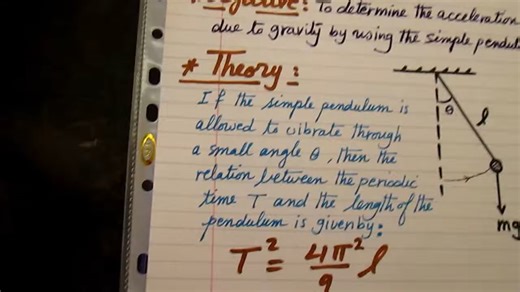 * Objective: To determine the acceleration
due to gravity by using the simple pendul
* Theory:
If the simple pendulum is
allowed to vibrate through
a small angle θ, then the
relation between the periodic
time T and the length of the
pendulum is given by:
T² = 4π²/g l
θ
l
mg